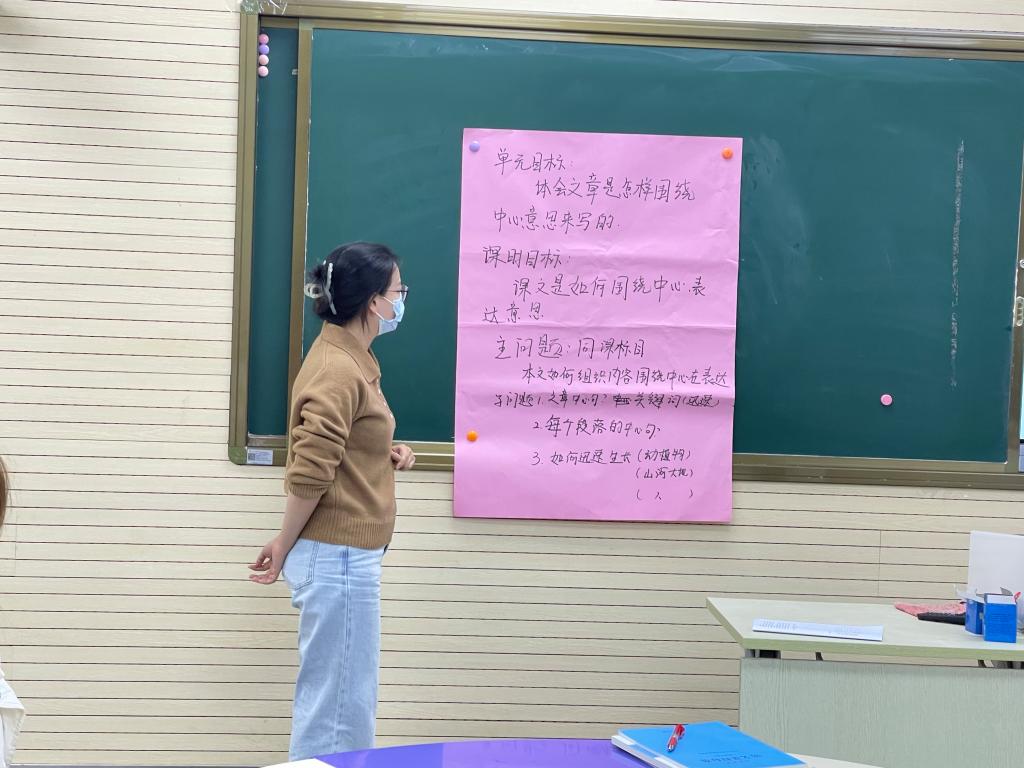 单元目标：
体会文章是怎样围绕
中心意思来写的.
课时目标：
课文是如何围绕中心表
达意思
主问题：同课标目
本文如何组织内容围绕中心在表达
子问题1.文章中心句？关键词(迅速)
2.每个段落的中心句.
3.如何迅速生长(动植物)
(山河大地)
(人)